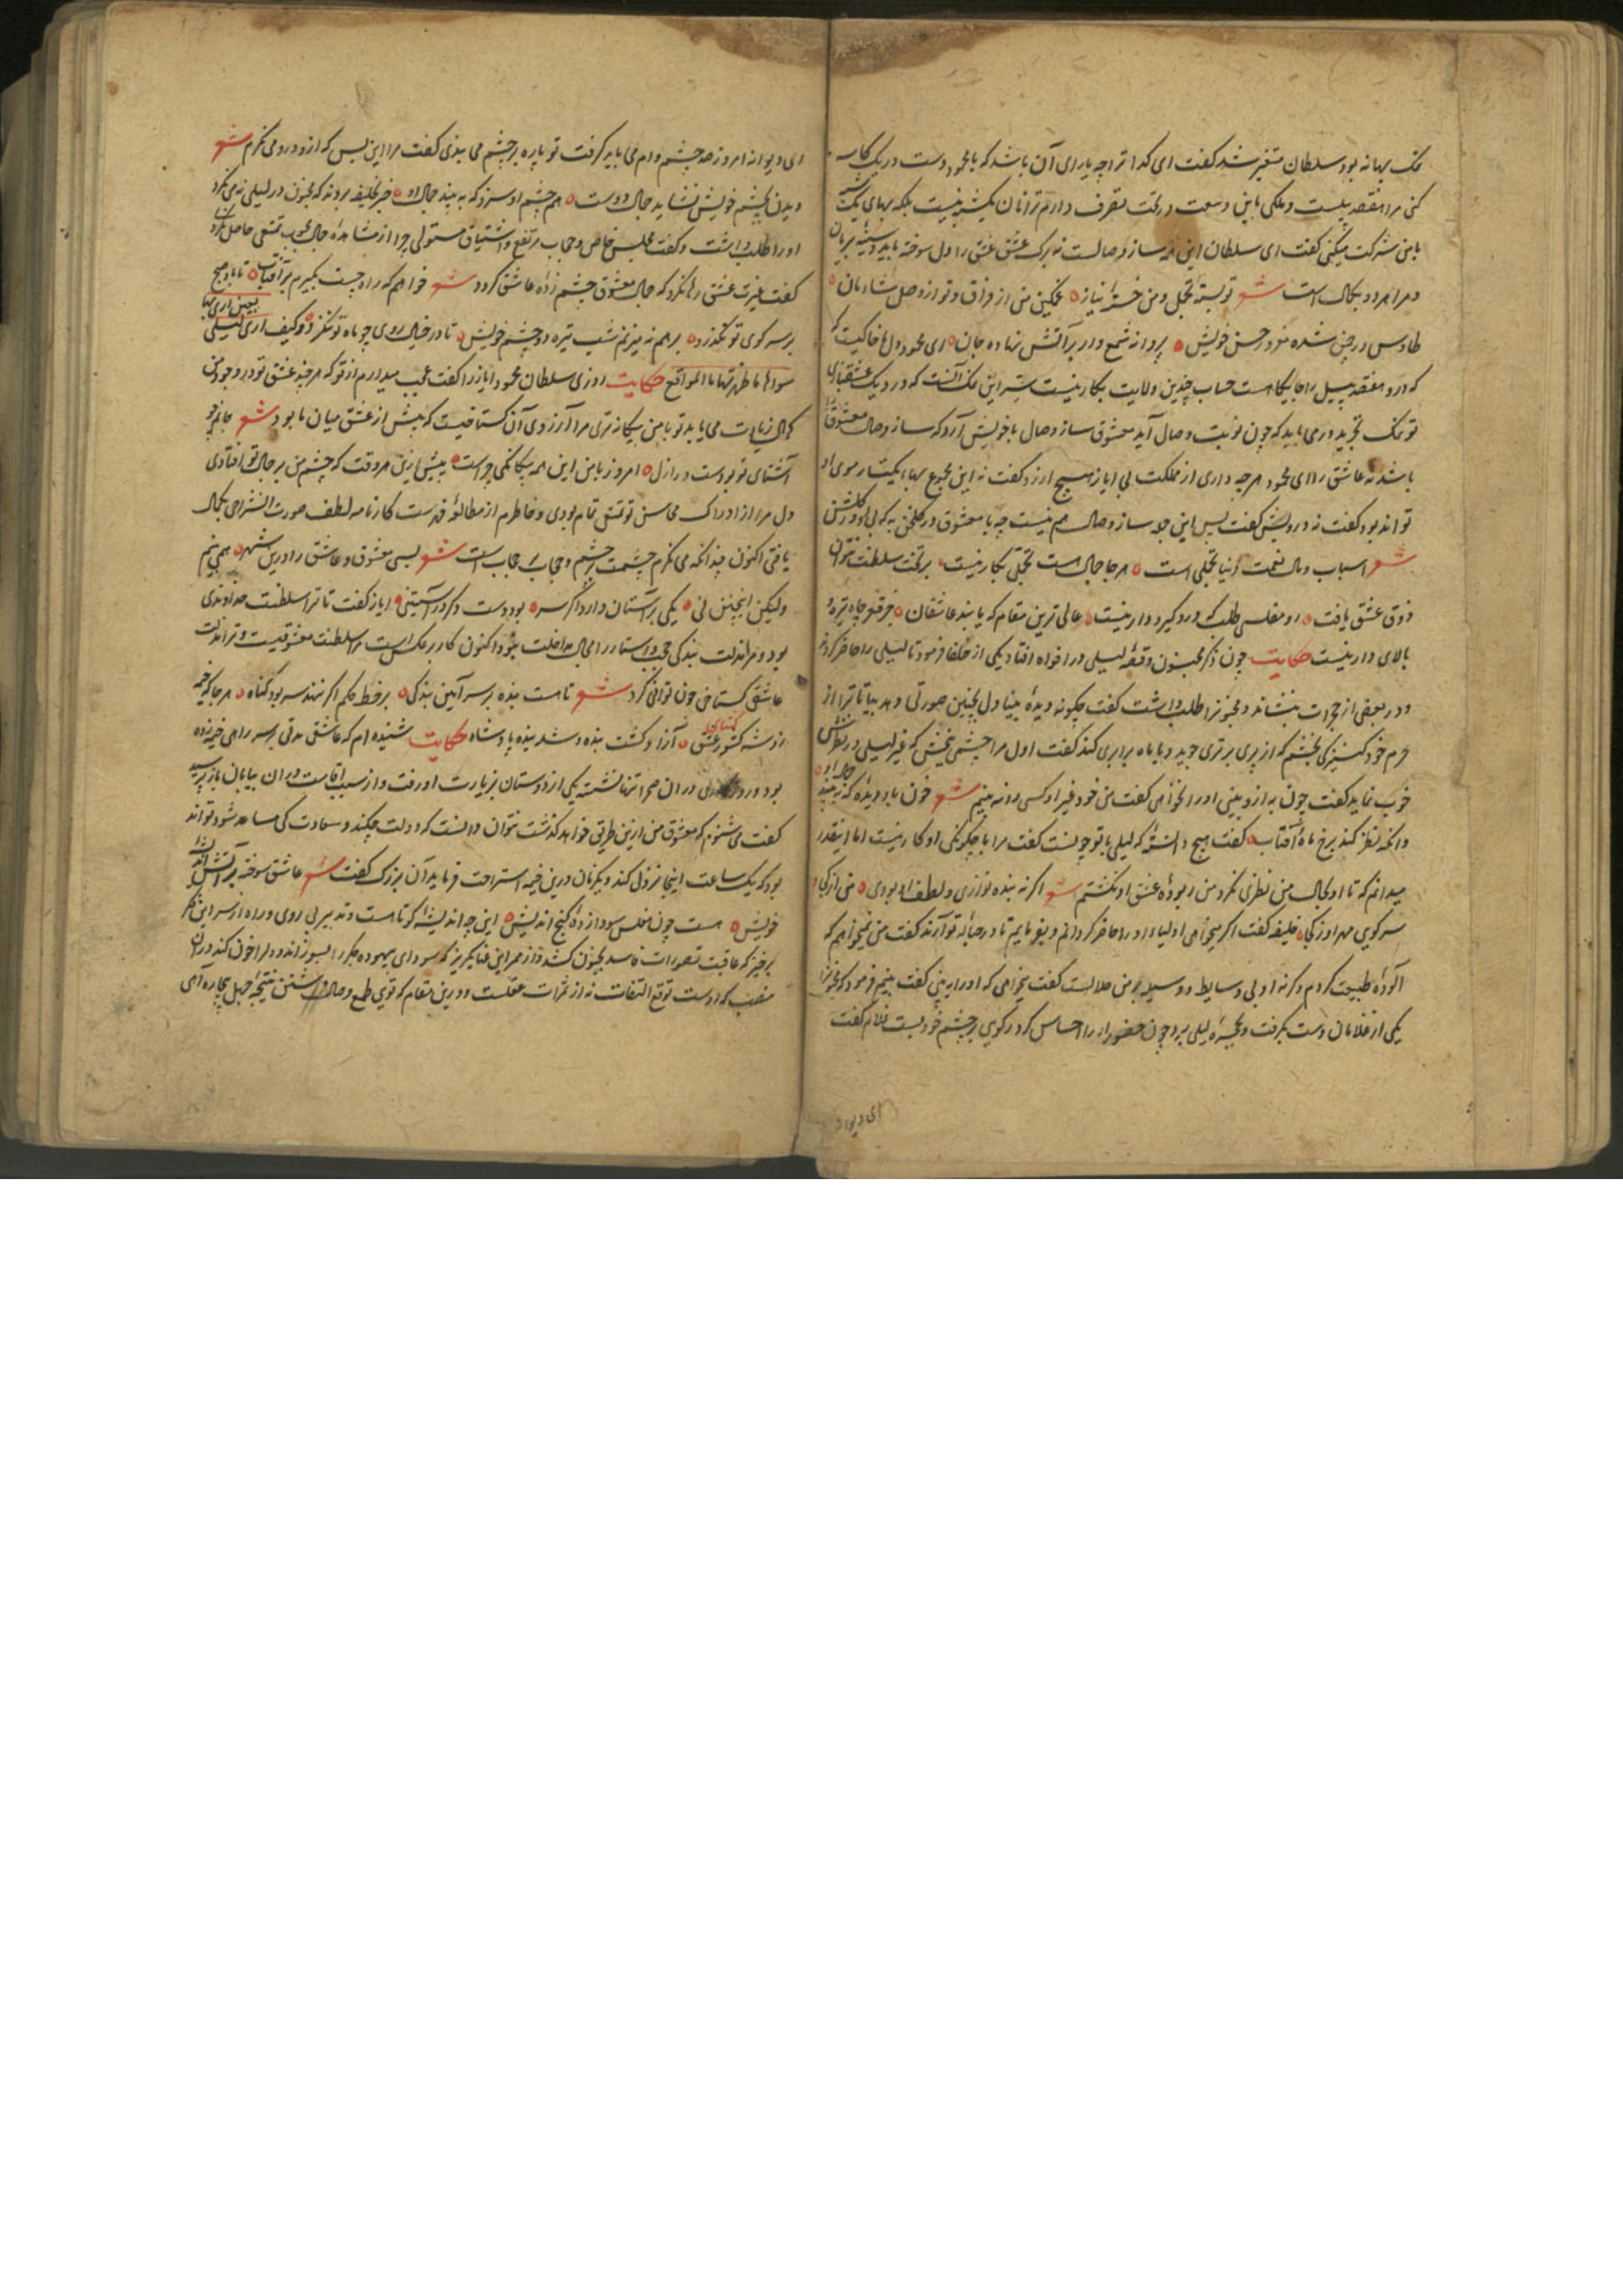 نمک بهانه بود سلطان متغیر شد گفت ای کدا ترا چه یارای آن باشد که با محمود دست در یک کاسه
کنی مرا هفتصد پیلست و ملکی باین وسعت در تحت تصرف دارم ترا نان یکشبه نیست بلکه بهای یک
بامن شرکت میکنی گفت ای سلطان این همه ساز وصالست نه برک عشق عشق را دل سوخته باید و سینه بریان
و مرا هر دو بکمال است شعر تو بسته تجمل و من خسته نیاز غمکین من از فراق و تو از وصل شادمان
طاوس در چمن شده مغرور حسن خویش پروانه شمع وار بر آتش نهاده جان ای محمود دل ها خاکیست
که درو هفتصد پیل را جایکاهست حساب چندین ولایت بکار نیست سر این نمک آنست که در دیک عشقبازی
تو نمک تجرید در می باید که چون نوبت وصال آید معشوق ساز وصال با خویش آرد که ساز وصال معشوق را
باشد نه عاشق را ای محمود هر چه داری از مملکت بی ایاز هیچ ارزد گفت نه این مجموع بهاء یکتار موی او
تواند بود گفت نه درویش گفت پس این جمله ساز وصال هم نیست چه با معشوق در گلخنی به که بی او در گلشن
شعر اسباب و مال نعمت دنیا تجملی است هر جا جمال هست تجمل بکار نیست بر تخت سلطنت نتوان
ذوق عشق یافت رو مفلسی طلب که درو گیر و دار نیست عالی ترین مقام که یابند عاشقان جز قعر چاه تیره و
بالای دار نیست حکایت چون ذکر مجنون و قصه لیلی در افواه افتاد یکی از خلفا فرمود تا لیلی را حاضر کردند
و در بعضی از حجرات بنشاند و مجنونرا طلب داشت گفت چگونه دیده بینا دل بچنین صورتی دهد بیا تا ترا از
حرم خود کنیزکی بخشم که از پری برتری جوید و با ماه برابری کند گفت اول مرا چشمی بخش که غیر لیلی در نظرش
خوب نماید گفت چون به ازو بینی او را نخواهی گفت من خود غیر او کسی را نه بینم شعر خون باد دیده که نه بیند جمال او
وانکه نظر کند برخ ماه و آفتاب گفت هیچ دانسته که لیلی با تو چونست گفت مرا با چگونگی او کار نیست اما اینقدر
میدانم که تا او بکمال من نظری نکرد من ربوده عشق او نگشتم شعر گر نه بنده نوازی و لطف او بودی من از کجا و
سر کوی مهر او ز کجا خلیفه گفت اگر میخواهی اولیاء او را حاضر گردانم و بفرمایم تا در حباله تو آرند گفت من نمیخواهم که
آلوده طبیعت گردم و گرنه او بی وسایط و وسیله بر من حلالست گفت میخواهی که او را به بینی گفت بینم فرمود که مجنونرا
یکی از غلامان دست بگرفت و بحجره لیلی برد چون حضور او را احساس کرد رکوی بر چشم خود بست غلام گفت
ای دیوانه
ای دیوانه امروز صد چشم وام می باید گرفت تو پاره بر چشم می بندی گفت مرا این بس که ازو در و می نگرم شعر
دیدن بچشم خویش نشاید جمال دوست هم چشم او سزد که به بیند جمال او خبر بخلیفه بردند که مجنون در لیلی نمی نگرد
او را طلب داشت و گفت مجلس خاص و حجاب مرتفع و اشتیاق مستولی چرا از مشاهده جمال محبوب تمتعی حاصل نکردی
گفت غیرت عشق رها نکرد که جمال معشوق چشم زده عاشق گردد شعر خواهم که راه چست بگیرم بر آفتاب تا باد صبح
بر سر کوی تو نگذرد بر هم نه میزنم شب تیره دو چشم خویش تا در خیال روی چو ماه تو ننگرد و کیف اری لیلی بعین اری بها
سواها ما طهرتها بالمدامع حکایت روزی سلطان محمود ایاز را گفت عجب میدارم از تو که هر چند عشق تو در وجود من
کمال زیادت می یابد تو با من بیگانه تری مرا آرزوی آن گستاخیست که پیش از عشق میان ما بود شعر جانم چو
آشنای تو بودست در ازل امروز با من این همه بیگانگی چراست پیش ازین هر وقت که چشم من بر جمال تو افتادی
دل مرا از ادراک محاسن تو تمتعی تمام بودی و خاطرم از مطالعه فهرست کارنامه لطف صورت انشراحی بکمال
یافتی اکنون چندانکه می نگرم چشمت بر چشم و حجاب بر حجاب است شعر بسی معشوق و عاشق را درین شهر همی بینم
ولیکن اینچنین نی یکی بر آستان دارد اگر سر بود دست دگر در آستینی ایاز گفت تا ترا سلطنت خداوندی
بود و مرا مذلت بندگی حجب و استار را مجال مداخلت نبود اکنون کار بر عکس است مرا سلطنت معشوقیست و ترا مذلت
عاشقی گستاخی چون توانی کرد شعر تا هست بنده بر سر آیین بندگی بر خط حکم اگر ننهد سر بود گناه هر جا که خیمه
زد شه کشور گشای عشق آزاد گشت بنده و شد بنده پادشاه حکایت شنیده ام که عاشقی مدتی بر سر راهی خیمه زده
بود و در آن صحرا تنها نشسته یکی از دوستان بزیارت او رفت و از سبب اقامت در ان بیابان باز پرسید
گفت می شنوم که معشوق من ازین طریق خواهد گذشت نتوان دانست که دولت چکند و سعادت کی مساعد شود تواند
بود که یک ساعت اینجا نزول کند و یکزمان درین خیمه استراحت فرماید آن بزرگ گفت شعر عاشق سوخته بر آتش
خویش هست چون مفلس سودا زده گنج اندیش این چه اندیشه کوتاهست و تدبیر بی روی و راه از سر این فکر
برخیز که عاقبت تصورات فاسد بجنون کشد و از ممر این عنا بگریز که سودای بیهوده جگر را بسوزاند و دل را خون کند در ان
منصب که اوست توقع التفات نه از ثمرات عقلست و درین مقام که تویی طمع وصال داشتن نتیجه جهل بیچاره آهی